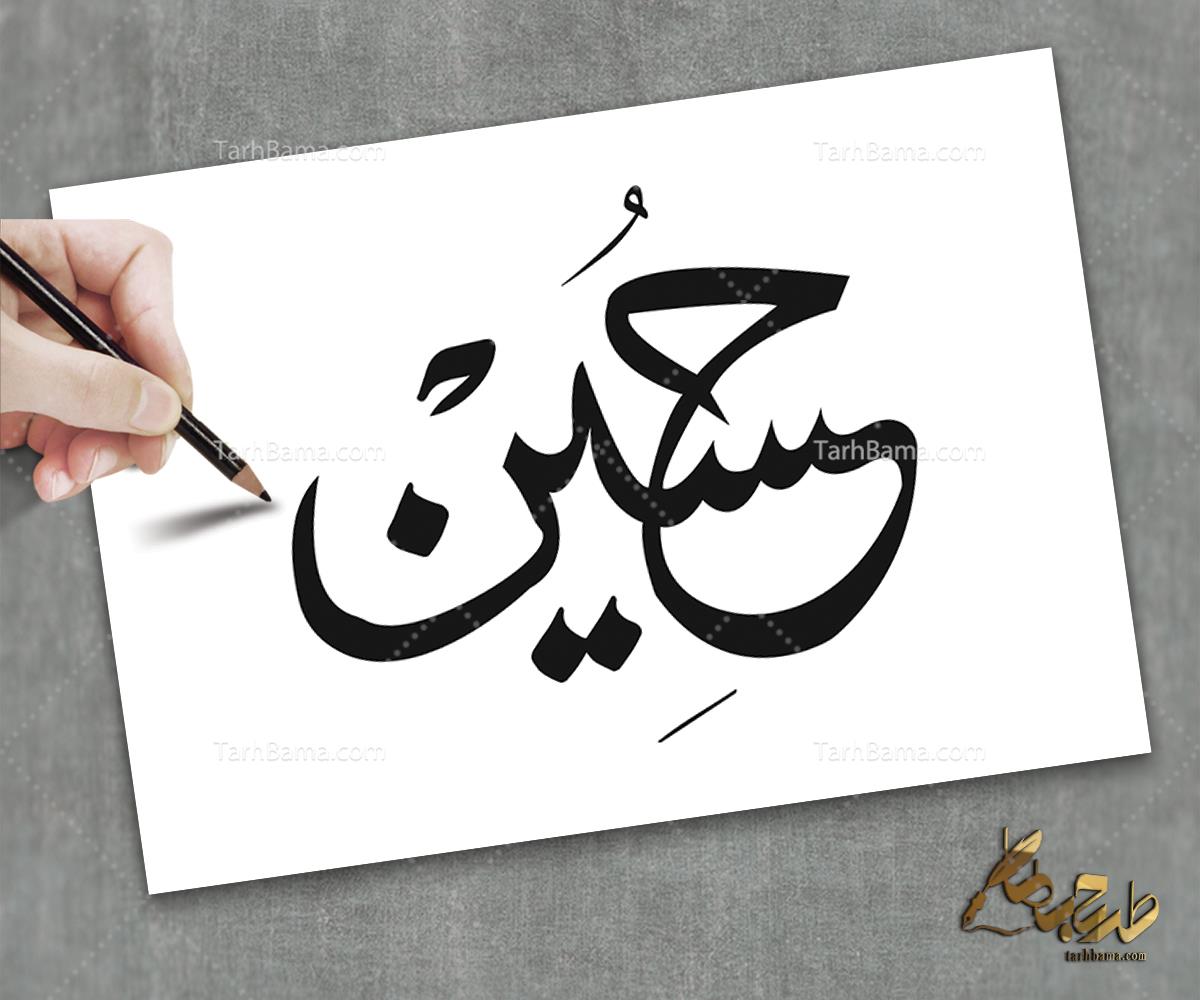 حُسِین
TarhBama.com TarhBama.com
TarhBama.com TarhBama.com
TarhBama.com TarhBama.com
طرح با ما
tarhbama.com